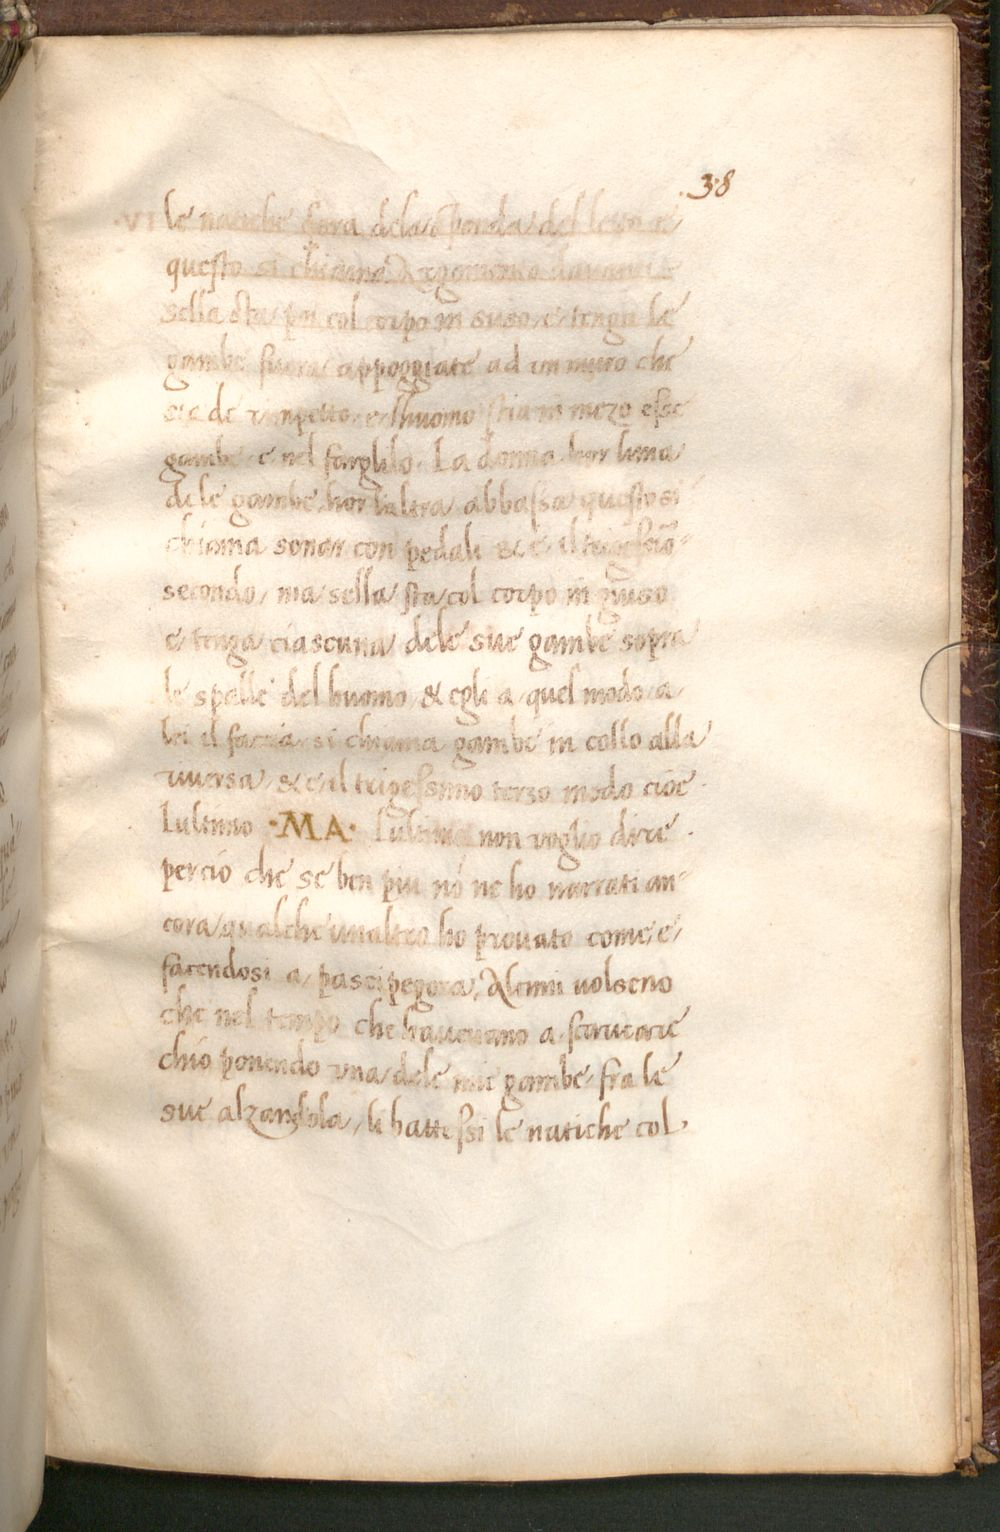 .38
.VI. le natiche fora dela sponda del letto e
questo si chiama Argomento davanti e
sella sta poi col corpo in suso, e tenga le
gambe fuora appoggiate ad un muro che
sia de rimpetto, e lhuomo stia in mezo esse
gambe, e nel farglilo. La donna hor luna
dele gambe, hor laltra abbassa, questo si
chiama sonar con pedali & è il trigesimo
secondo, ma sella sta col corpo in giuso
e tenga ciascuna dele sue gambe sopra
le spalle del huomo, & egli a quel modo a
lei il faccia, si chiama gambe in collo alla
riversa, & è il trigessimo terzo modo cioè
lultimo .MA. lultimo non voglio dire
perciò che se ben piu nō ne ho narrati an=
cora, qualche unaltro ho provato come, e,
facendosi a, pasci pegora, Alcuni volseno
che nel tempo che havevano a scaricare
chio ponendo una dele mie gambe fra le
sue alzandola, li battessi le natiche col